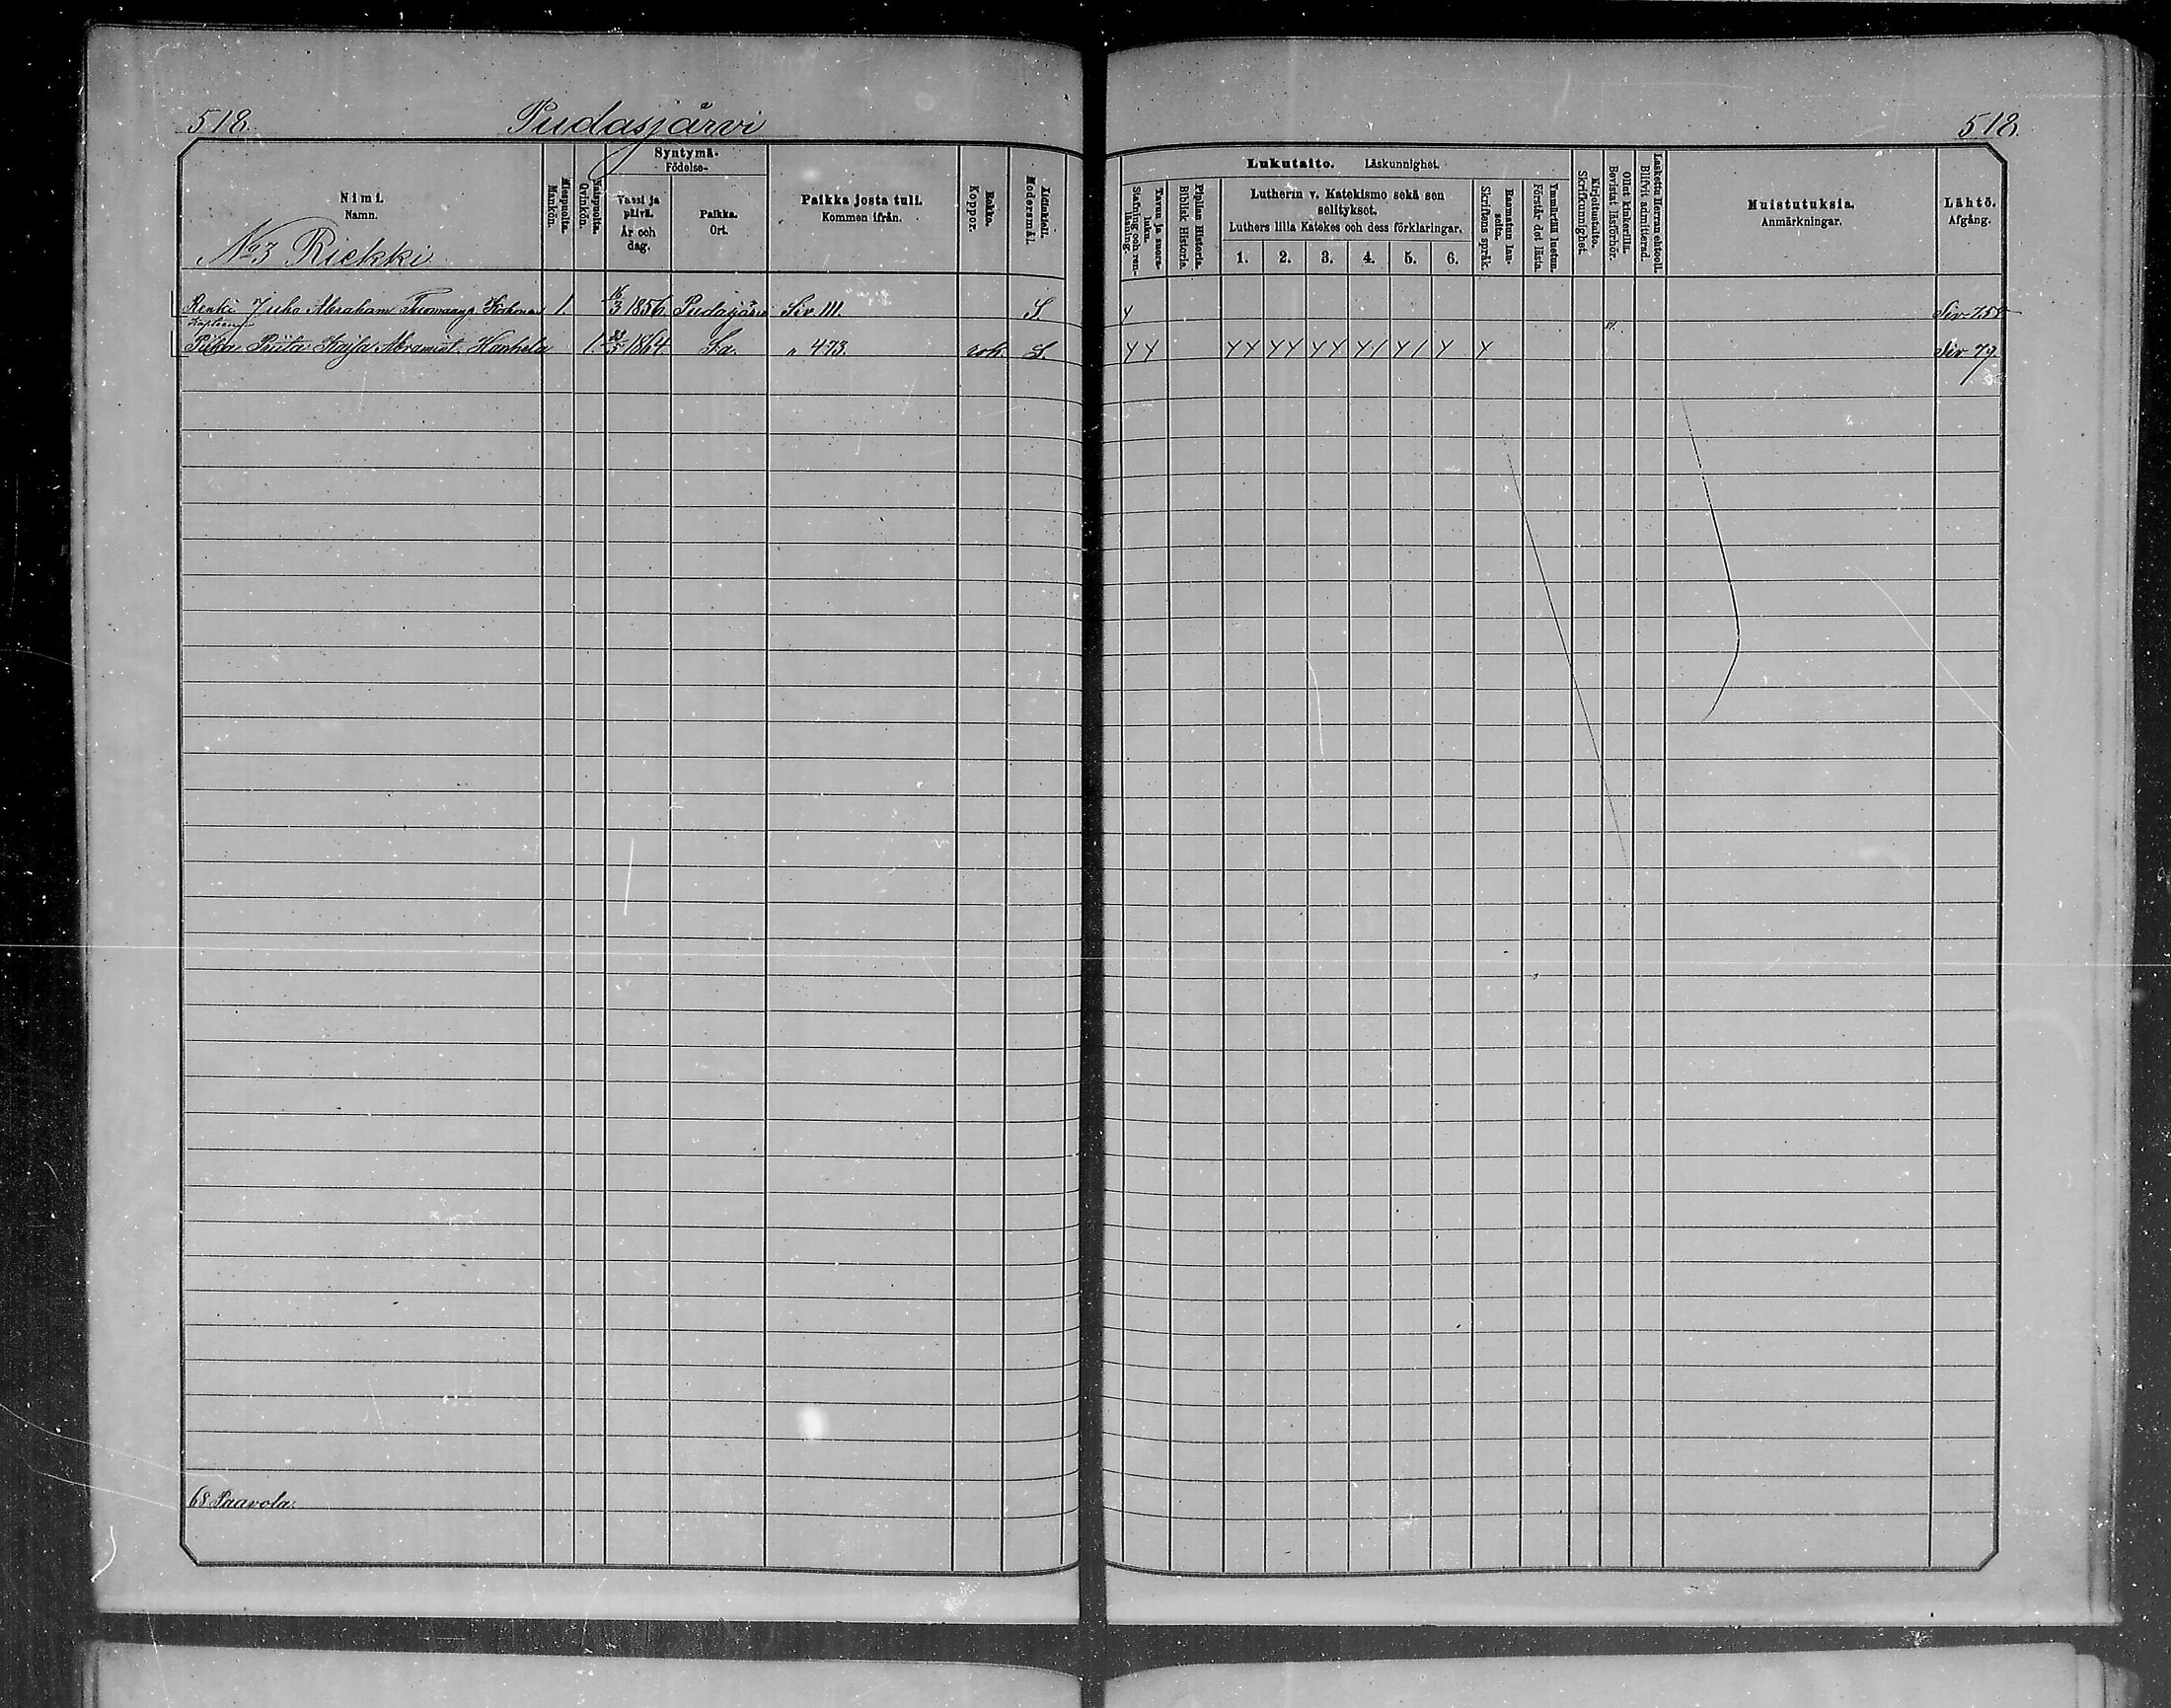 518.
Pudasjärvi
518.
Syntymä.
Födelse-
Nimi.
Namn.
Miespuolta.
Mankön.
Naispuolta.
Qvinkön.
Vuosi ja päivä.
År och dag.
Paikka.
Ort.
Paikka josta tuli.
Kommen ifrån.
Rokko.
Koppor.
Äidinkieli.
Modersmål.
Lukutaito. Läskunnighet.
Tavuu ja suora-luku.
Stafning och ren-läsning.
Piplian Historia.
Biblisk Historie.
Lutherin v. Katekismo sekä sen
selitykset.
Luthers lilla Katekes och dess förklaringar.
1. 2. 3. 4. 5. 6.
Raamatun lau-seita.
Skriftens språk.
Ymmärtää luetun.
Förstår det lästa.
Kirjoitustaito.
Skrifkunnighet.
Ollut kinkerillä.
Bevistat läsförhör.
Laskettu Herran ehtooll.
Blifvit admitterad.
Muistutuksia.
Anmärkningar.
Lähtö.
Afgång.
No 3 Riekki
Renki Juho Abraham 1. 16/3 1856 Pudasjärvi Siv 111. S. Y Siv 258
Piika Priita Kaisa Abramint. Hanhela 1. 1864. S:a. " 473. rok. S. Y Y Y Y Y Y Y Y Y / Y / Y Y Siv 79
68 Paavola.